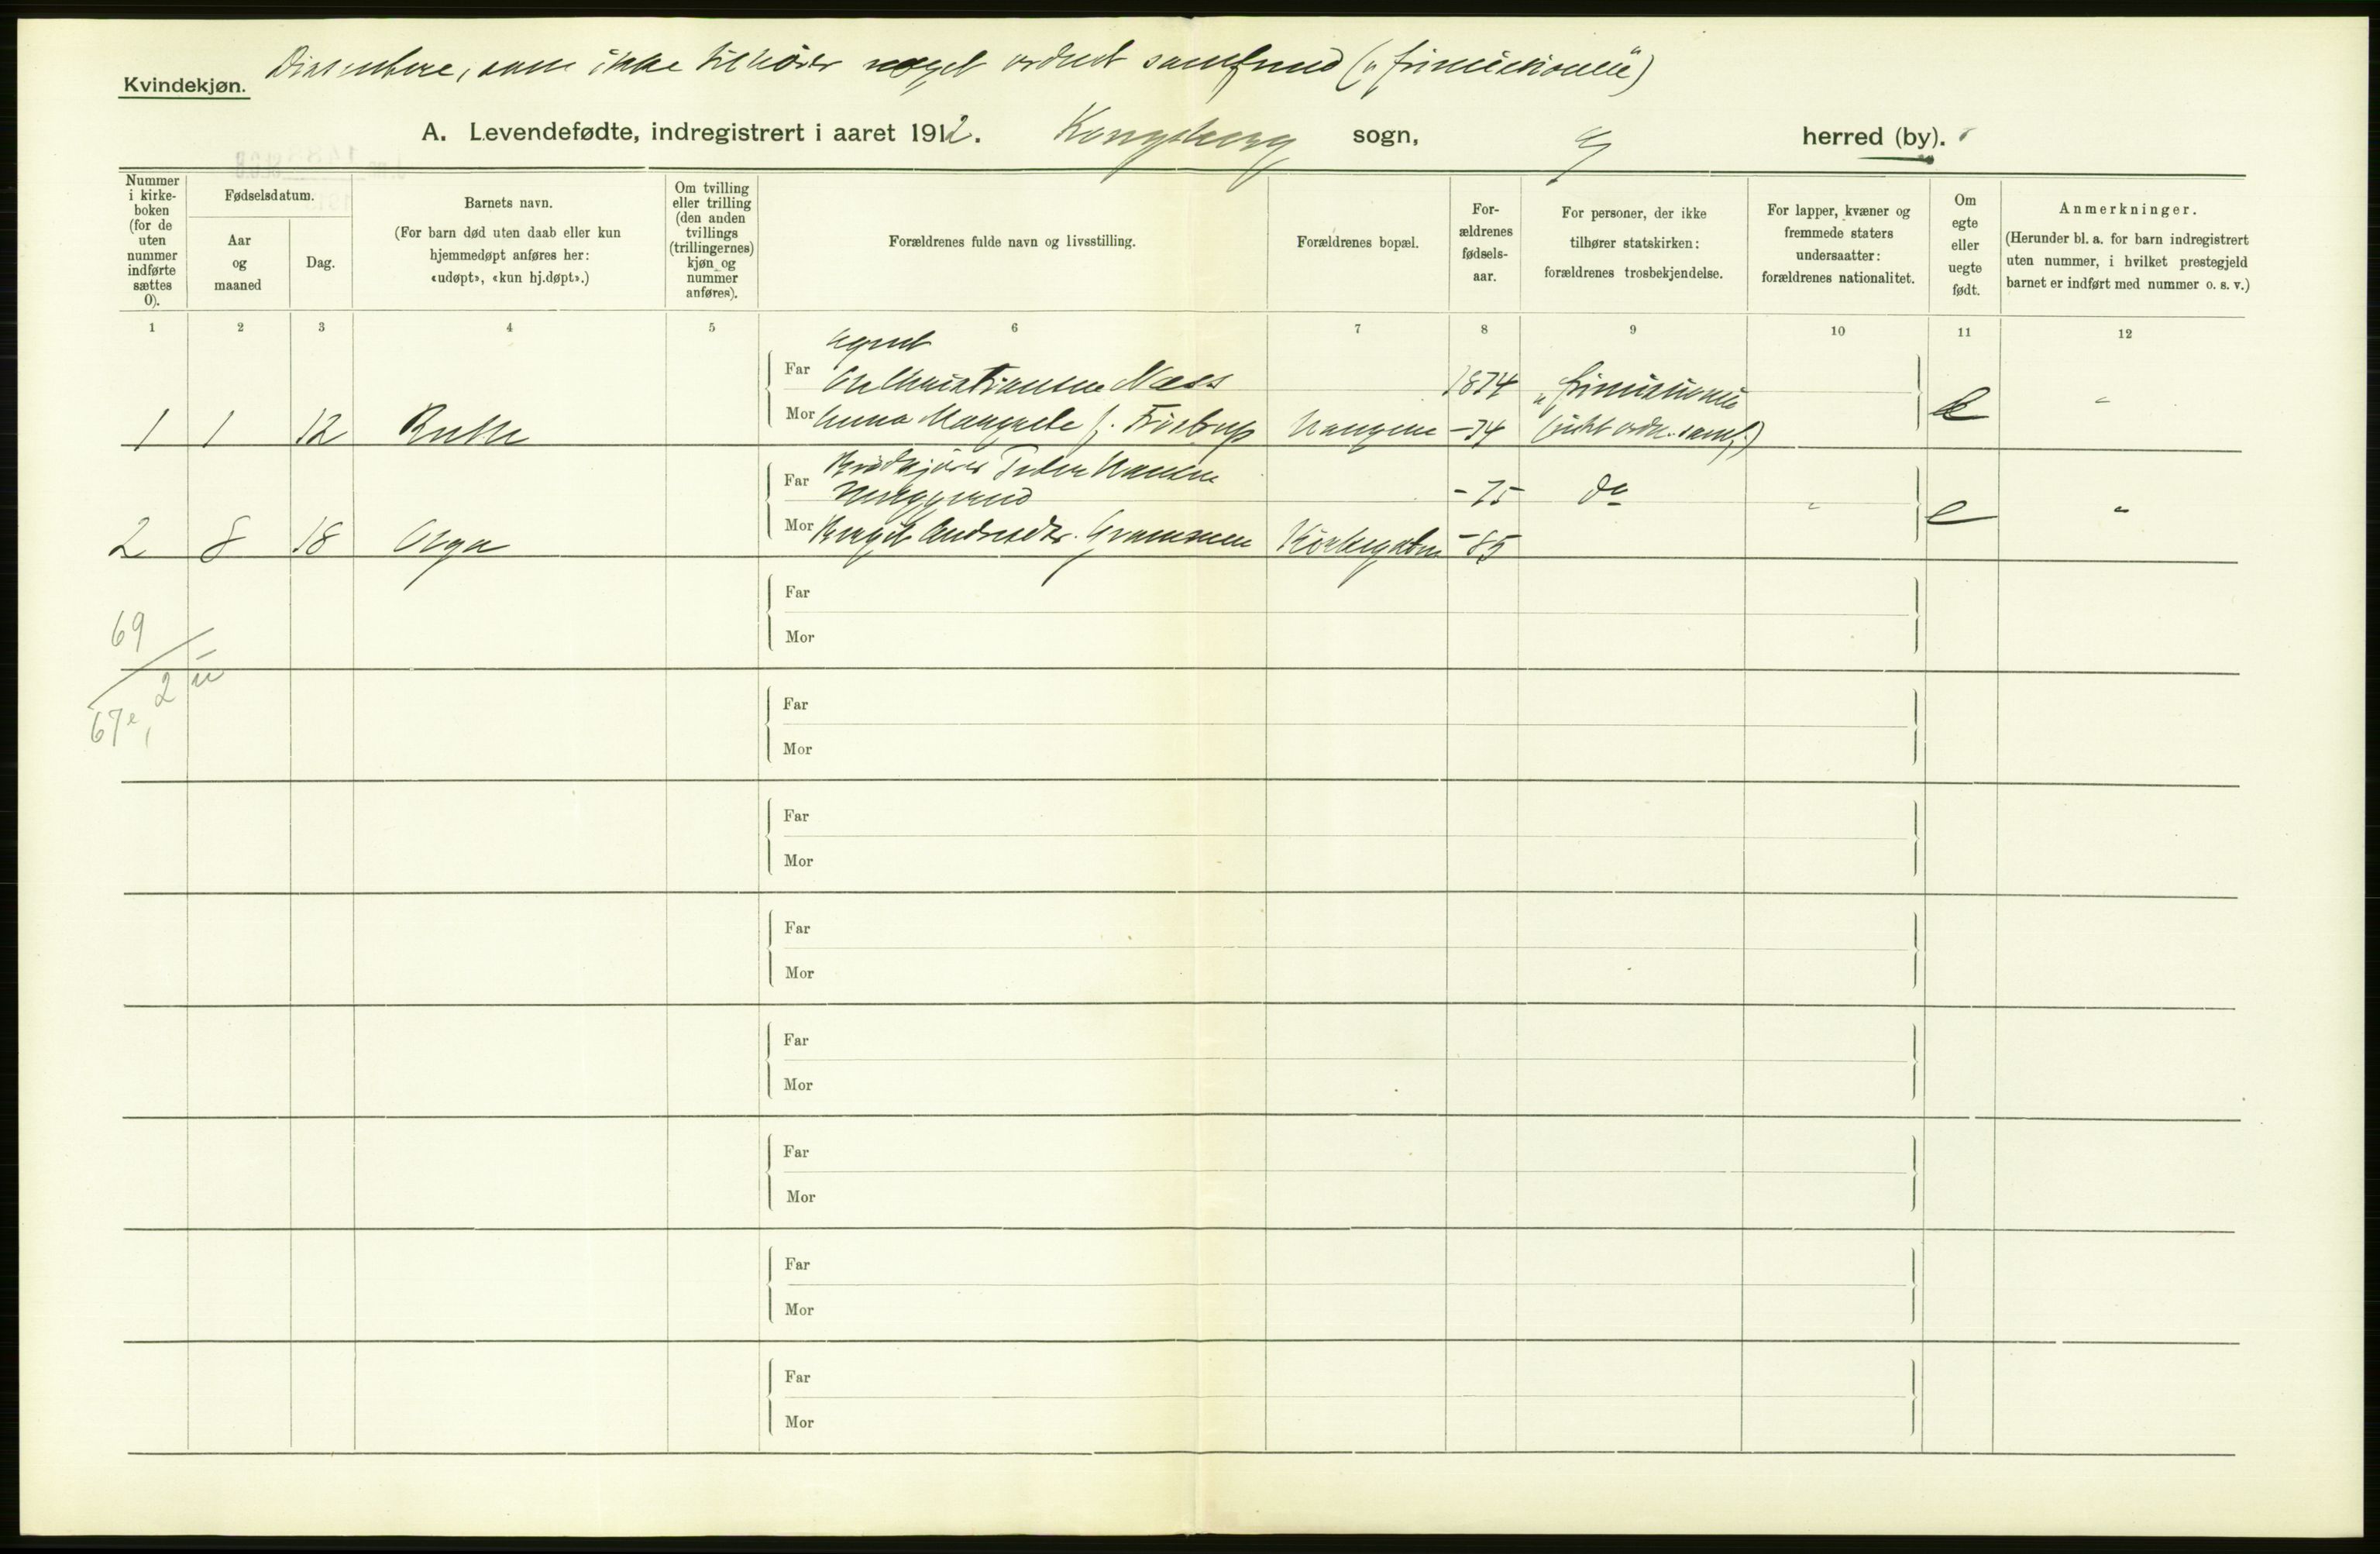 Dissentere, som ikke tilhører noget ordnet samfund („frimissionen")
Kvindekjøn.
A. Levendefødte, indregistrert i aaret 1912. Kongsberg sogn, herred (by).
Nummer i kirke-boken (for de uten nummer indførte sættes 0).
Fødselsdatum.
Aar og maaned
Dag.
Barnets navn.
(For barn død uten daab eller kun hjemmedøpt anføres her: «udøpt», «kun hj.døpt».)
Om tvilling eller trilling (den anden tvillings (trillingernes) kjøn og nummer anføres).
Forældrenes fulde navn og livsstilling.
Forældrenes bopæl.
For-ældrenes fødsels-aar.
For personer, der ikke tilhører statskirken: forældrenes trosbekjendelse.
For lapper, kvæner og fremmede staters undersaatter: forældrenes nationalitet.
Om egte eller uegte født.
Anmerkninger.
(Herunder bl. a. for barn indregistrert uten nummer, i hvilket prestegjeld barnet er indført med nummer o. s. v.)
1 2 3 4 5 6 7 8 9 10 11 12
Agent
Far Ole Kristiansen Næss 1874 „frimissionen
1 1 12 Ruth Mor Anna Margrete f. Tristrup -74 (ikke ordn. samf.) e "
Far Peder Hansen
-75 do " e "
2 8 18 Olga Mor Andreasdtr. -85
Far
Mor
69
2 u
67 e,
Far
Mor
Far
Mor
Far
Mor
Far
Mor
Far
Mor
Far
Mor
Far
Mor